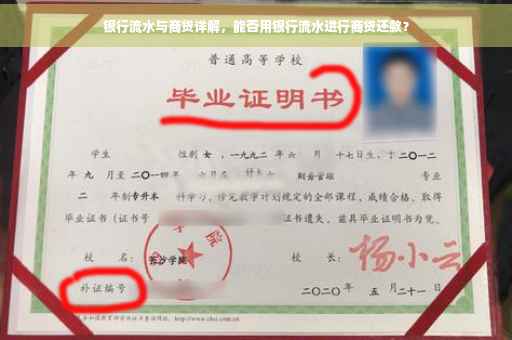 银行流水与商贷详解，能否用银行流水进行商贷还款？
普通高等学校
毕业证明书
学生 性别 女，一九九二年 六 月 十七日生，于二〇一二
年 九 月至二〇一四 年 六月在 财务管理 专业
二 年制专升本 科学习，修完教学计划规定的全部课程，成绩合格，取得
毕业证书（证书号 证书遗失，兹具毕业证明书为凭。
校 名： 长沙学院 校 长： 杨小云
补证编号 二〇二〇年 五 月二十一日
http://www.chsi.com.cn